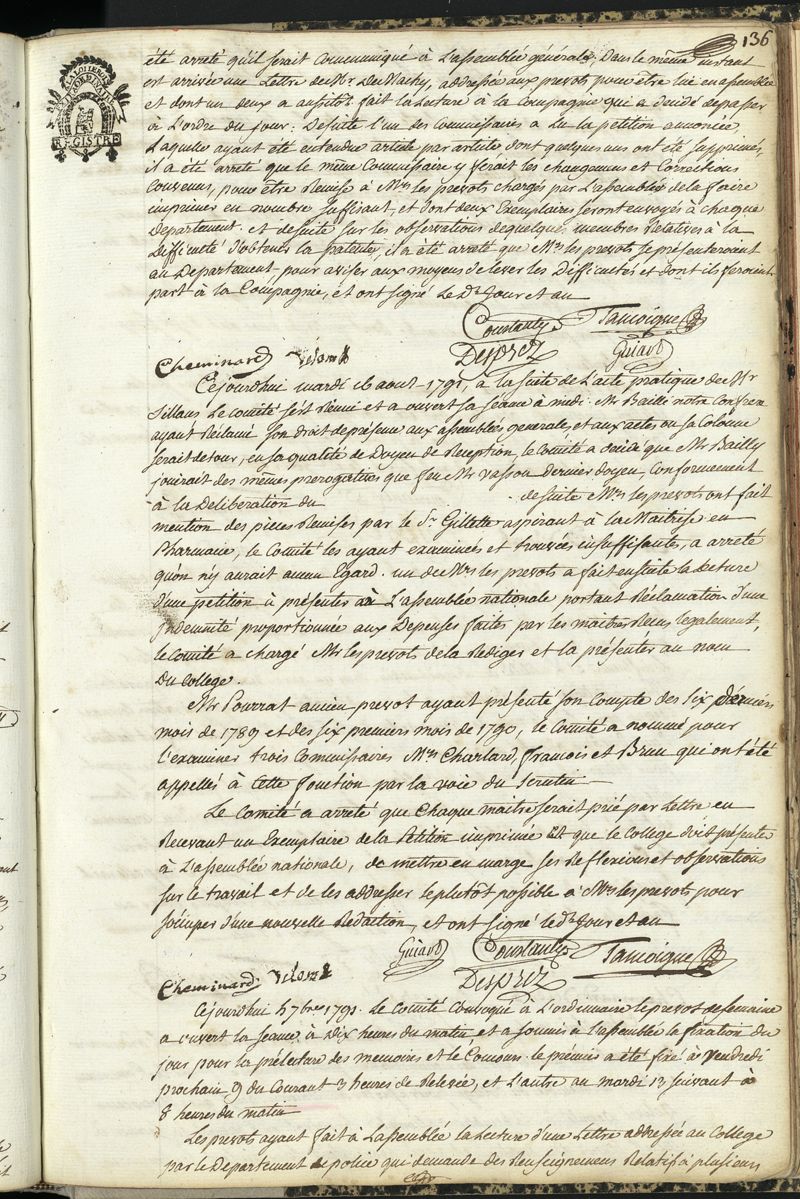 136
REGISTRE
été arreté qu'il serait communiqué à L'assemblée générale; Dans le même instant
est arrivée une Lettre de Mr. De Machy, addressée aux prevots pour être lue en assemblée
et dont un deux a aussitôt fait la Lecture à la Compagnie qui a décidé de passer
à L'ordre du jour: De suite l'un des Commissaires a lu la petition annoncée,
Laquelle ayant été entendue article par article dont quelques uns ont été supprimés,
il a été arreté que le même Commissaire y ferait les changemens et Corrections
Convenus, pour être Remise à Mrs les prevots chargés par L'assemblée de la faire
imprimer en nombre suffisant, et dont deux Exemplaires seront envoyés à chaque
Departement. et de suite sur les observations de quelques membres Relatives à la
Difficulté d'obtenir la patente, il a été arreté que Mrs les prevots se présenteroient
au Departement, pour aviser aux moyens de lever les Difficultés et dont ils feroient
part à la Compagnie, et ont signé Le Dt Jour et an
Constantin Tassoigne
Cheminard Desprez Guiard
Cejourdhui mardi 16 aout 1791, à la suite de L'acte pratique de Mr
Sillans Le comité s'est Reuni et a ouvert sa séance à midi. Mr Bailli notre Confrere
ayant Réclamé son droit de présence aux assemblées generales, et aux actes ou sa Colonne
serait de tour, en sa qualité de Doyen de Reception, le Comité a décidé que Mr Bailly
jouirait des mêmes prerogatives que feu Mr Vassou dernier doyen, Conformement
à la Deliberation du de suite Mrs les prevots ont fait
mention des pieces Remises par le Sr. Gillette aspirant à la Maitrise en
Pharmacie, le Comité les ayant examinées et trouvées insuffisantes, a arreté
qu'on n'y aurait aucun Egard. un de Mrs les prevots a fait ensuite la Lecture
d'une petition à présenter à L'assemblée nationale portant Réclamation d'une
Indemnité proportionnée aux Depenses faites par les maitres Reçus legalement,
le Comité a chargé Mrs les prevots de la Rediger et la présenter au nom
Du College.
Mr Pourrat ancien prevot ayant présenté son Compte des six Derniers
mois de 1789 et des six premiers mois de 1790, le Comité a nommé pour
l'examiner trois Commissaires Mrs Charlard, francois et Brun qui ont été
appellés à Cette fonction par la voie du Scrutin
Le Comité a arreté que Chaque maitre serait prié par Lettre en
Recevant un Exemplaire de la Petition imprimée que le College doit présenter
à L'assemblée nationale, de mettre en marge ses Reflexions et observations
sur le travail et de les addresser le plutôt possible à Mrs les prevots pour
s'occuper d'une nouvelle Redaction, et ont signé le Dt Jour et an
Guiard Constantin Tassoigne
Cheminard Desprez
Cejourdhui 5 7bre 1791. Le Comité Convoqué à L'ordinaire le prevot de semaine
a ouvert la séance à Dix heures du matin et a soumis à l'assemblée la fixation du
jour pour la prélecture des memoires et le Concours. le prémier a été fixé à Vendredi
prochain 9 du Courant 3 heures de Relevée, et L'autre au mardi 13 suivant à
8 heures du matin
Les prevots ayant fait à L'assemblée la Lecture d'une Lettre addressée au College
par le Departement de police qui demande des Renseignemens Relatifs à plusieurs